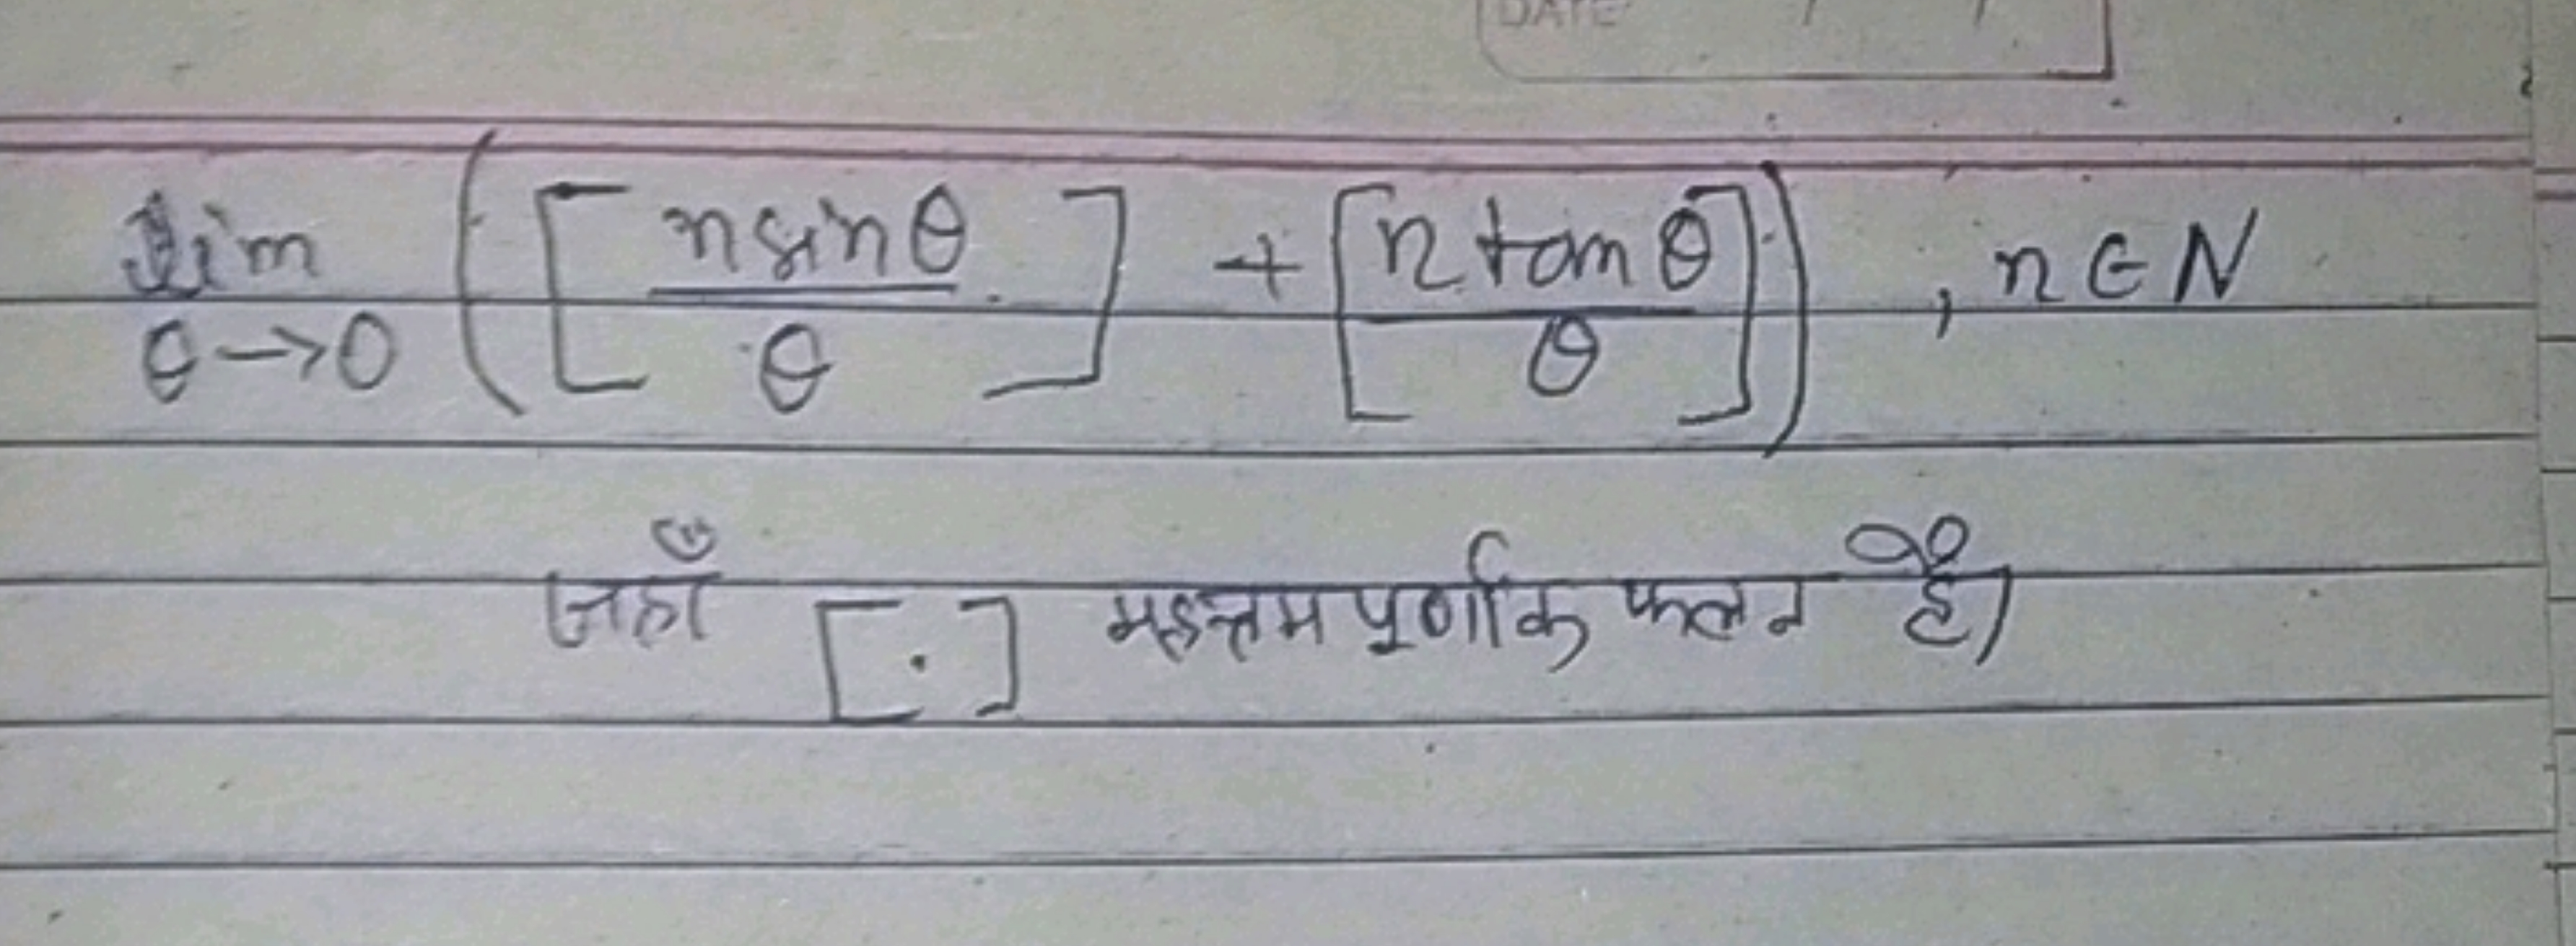 DATE / /
lim θ→0 ( [ n sin θ / θ ] + [ n tan θ / θ ] ) , n ∈ N
जहाँ [ . ] महत्तम पूर्णांक फलन है।